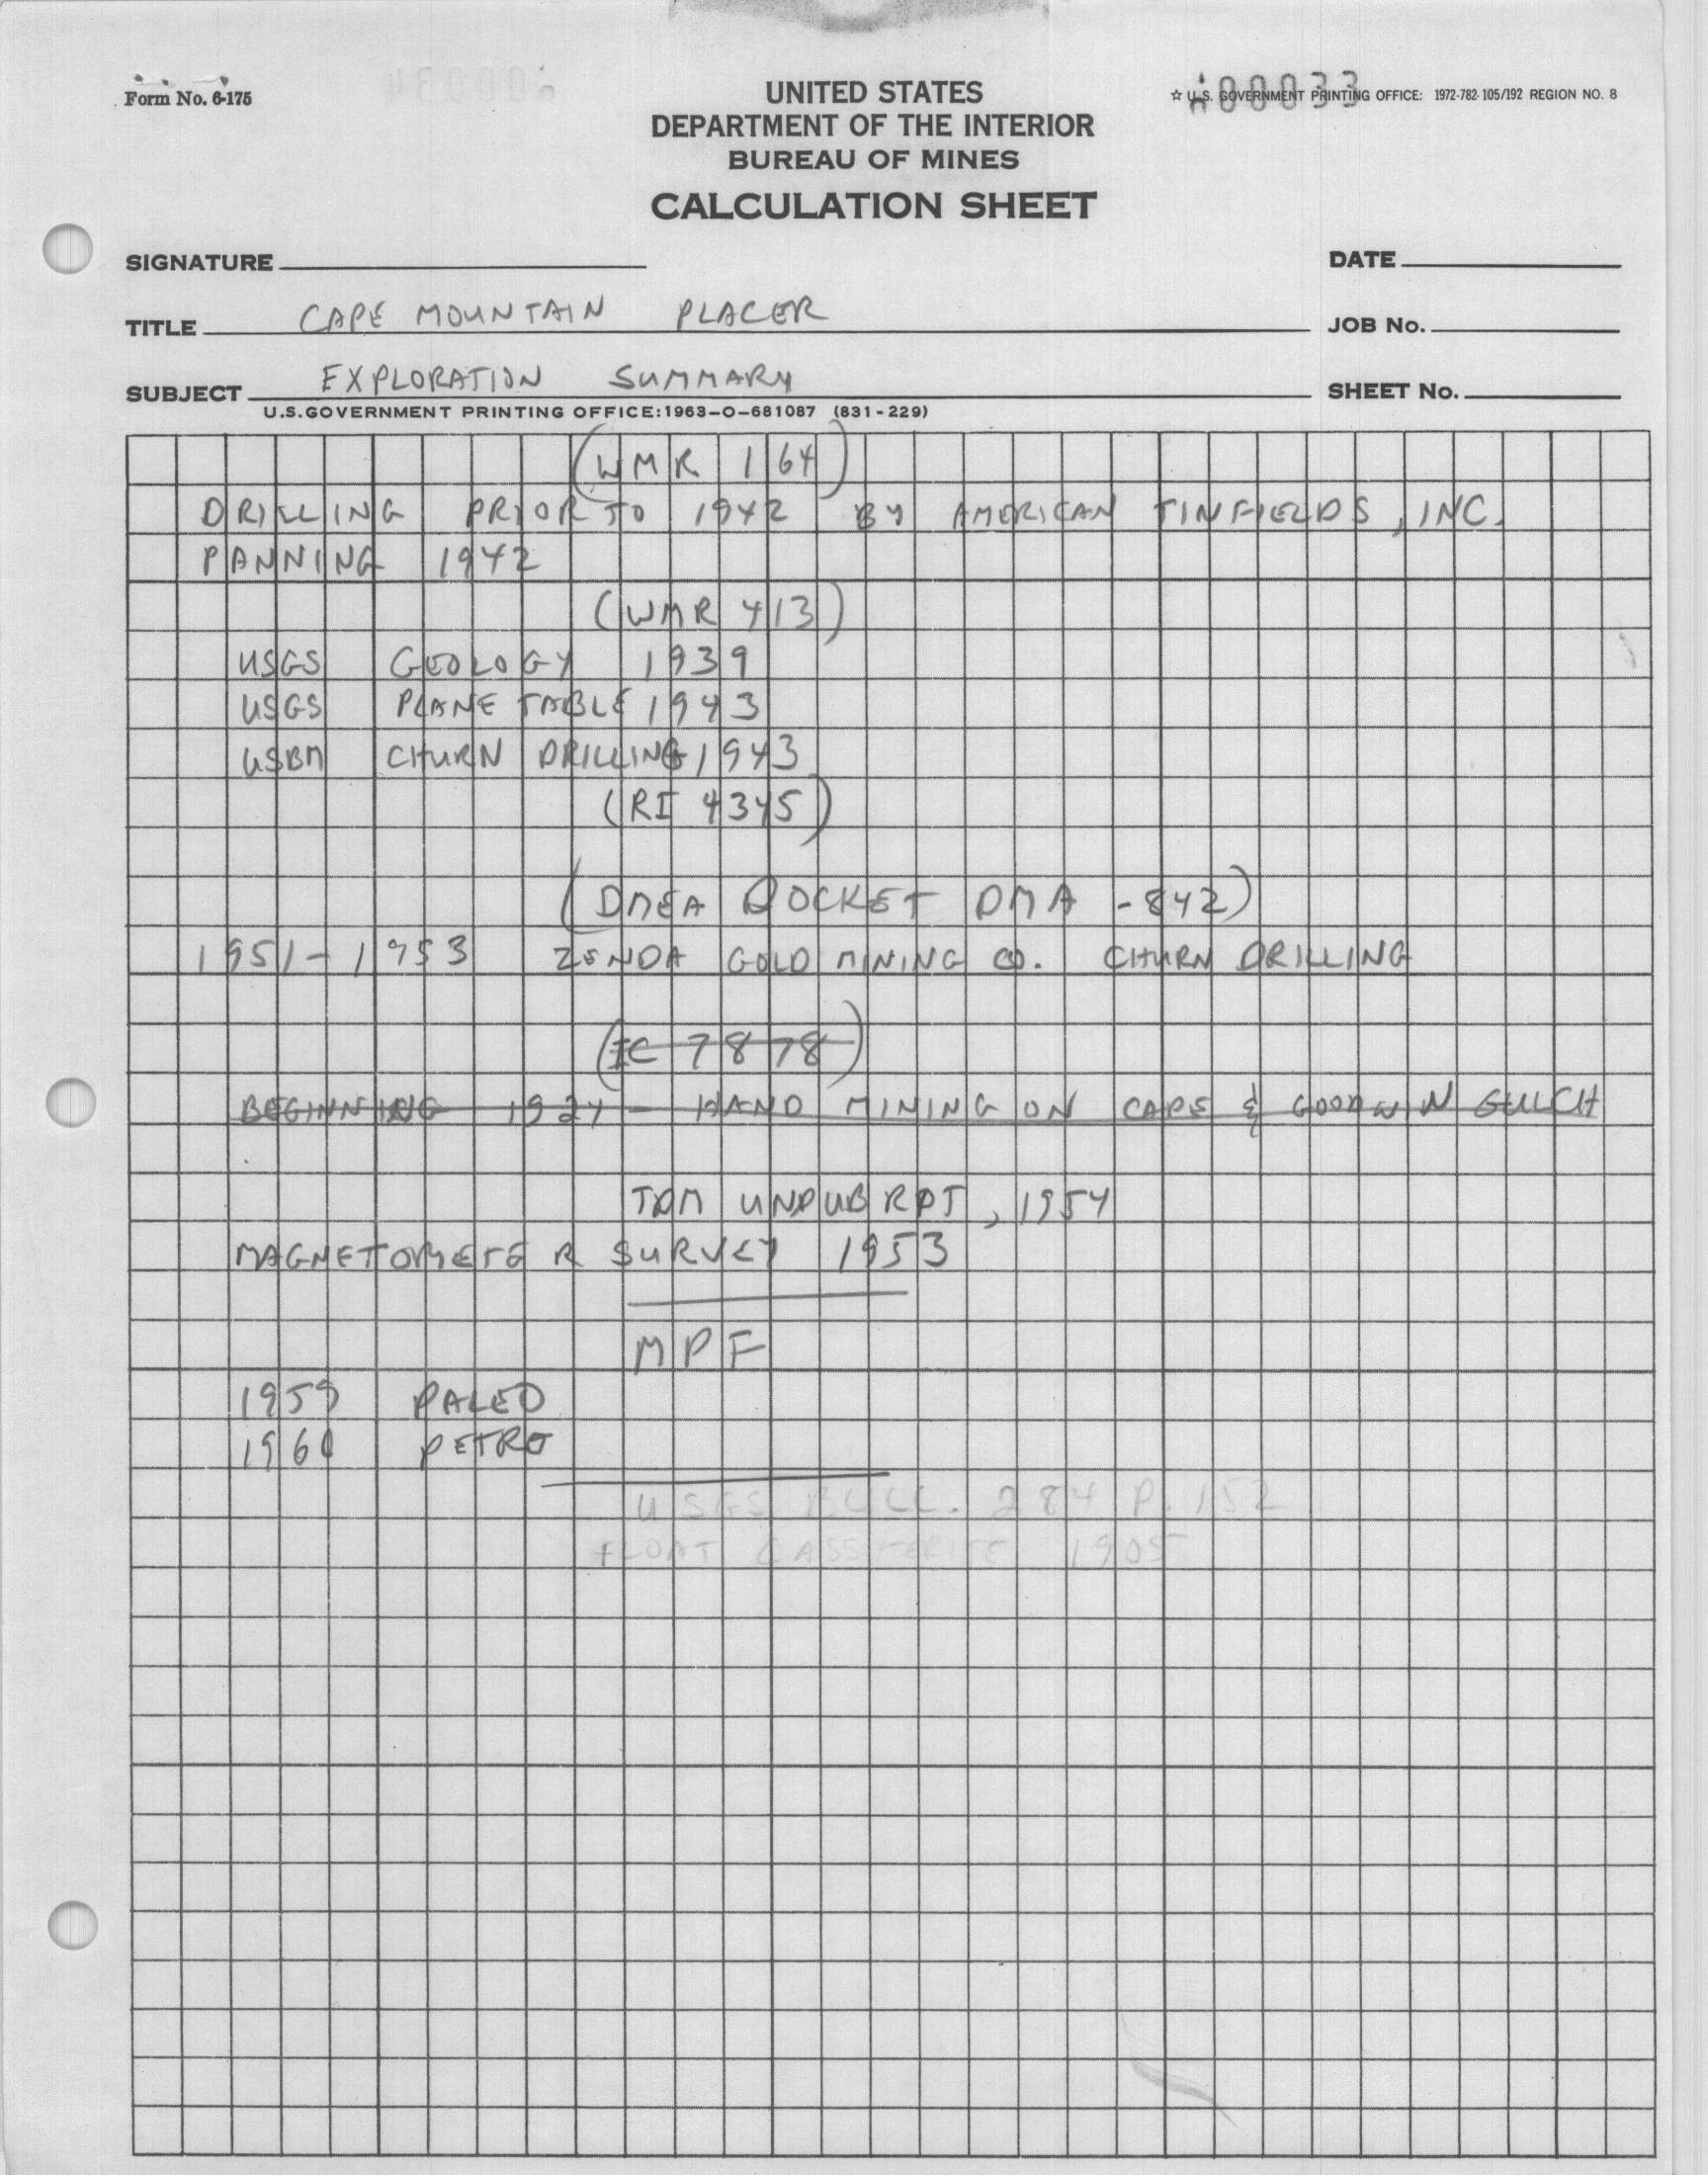 Form No. 6-175
UNITED STATES
DEPARTMENT OF THE INTERIOR
BUREAU OF MINES
CALCULATION SHEET
☆ U.S. GOVERNMENT PRINTING OFFICE: 1972-782-105/192 REGION NO. 8
00033
SIGNATURE
DATE
TITLE CAPE MOUNTAIN PLACER
JOB No.
SUBJECT EXPLORATION SUMMARY
SHEET No.
U.S.GOVERNMENT PRINTING OFFICE:1963-O-681087 (831-229)
(WMR 164)
DRILLING PRIOR TO 1942 BY AMERICAN TINFIELDS, INC.
PANNING 1942
(WMR 413)
USGS GEOLOGY 1939
USGS PLANE TABLE 1943
USBM CHURN DRILLING 1943
(RI 4345)
(DMEA DOCKET DMA -842)
1951-1953 ZENDA GOLD MINING CO. CHURN DRILLING
(IC 7878)
BEGINNING 1924 - HAND MINING ON CAPE & GOODWIN GULCH
TDM UNPUB RPT, 1954
MAGNETOMETER SURVEY 1953
MPF
1959 PALEO
1960 PETRO
USGS BULL. 284 P. 152
FLOAT CASSITERITE 1905